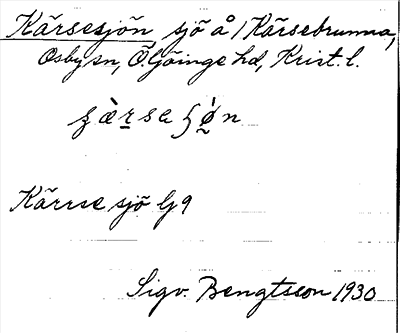 Kärsesjön sjö å /Kärsebrunna,
Osby sn, Ö. Göinge hd, Krist. l.
Kärrsesjö G 9
Sigv. Bengtsson 1930